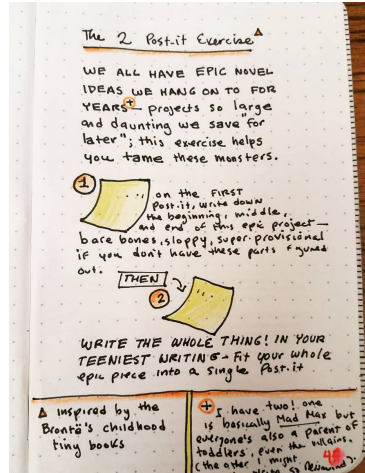 The 2 Post-it Exercise △
WE ALL HAVE EPIC NOVEL
IDEAS WE HANG ON TO FOR
YEARS + – projects so large
and daunting we save "for
later"; this exercise helps
you tame these monsters.
1
on the FIRST
Post-it, write down
the beginning, middle,
and end of this epic project –
bare bones, sloppy, super-provisional
if you don't have these parts figured
out.
THEN
2
WRITE THE WHOLE THING! IN YOUR
TEENIEST WRITING – Fit your whole
epic piece into a single Post-it
△ inspired by the
Brontë's childhood
tiny books
+ I have two! one
is basically Mad Max but
everyone's also a parent of
toddlers, even
the villains.
(the other I might